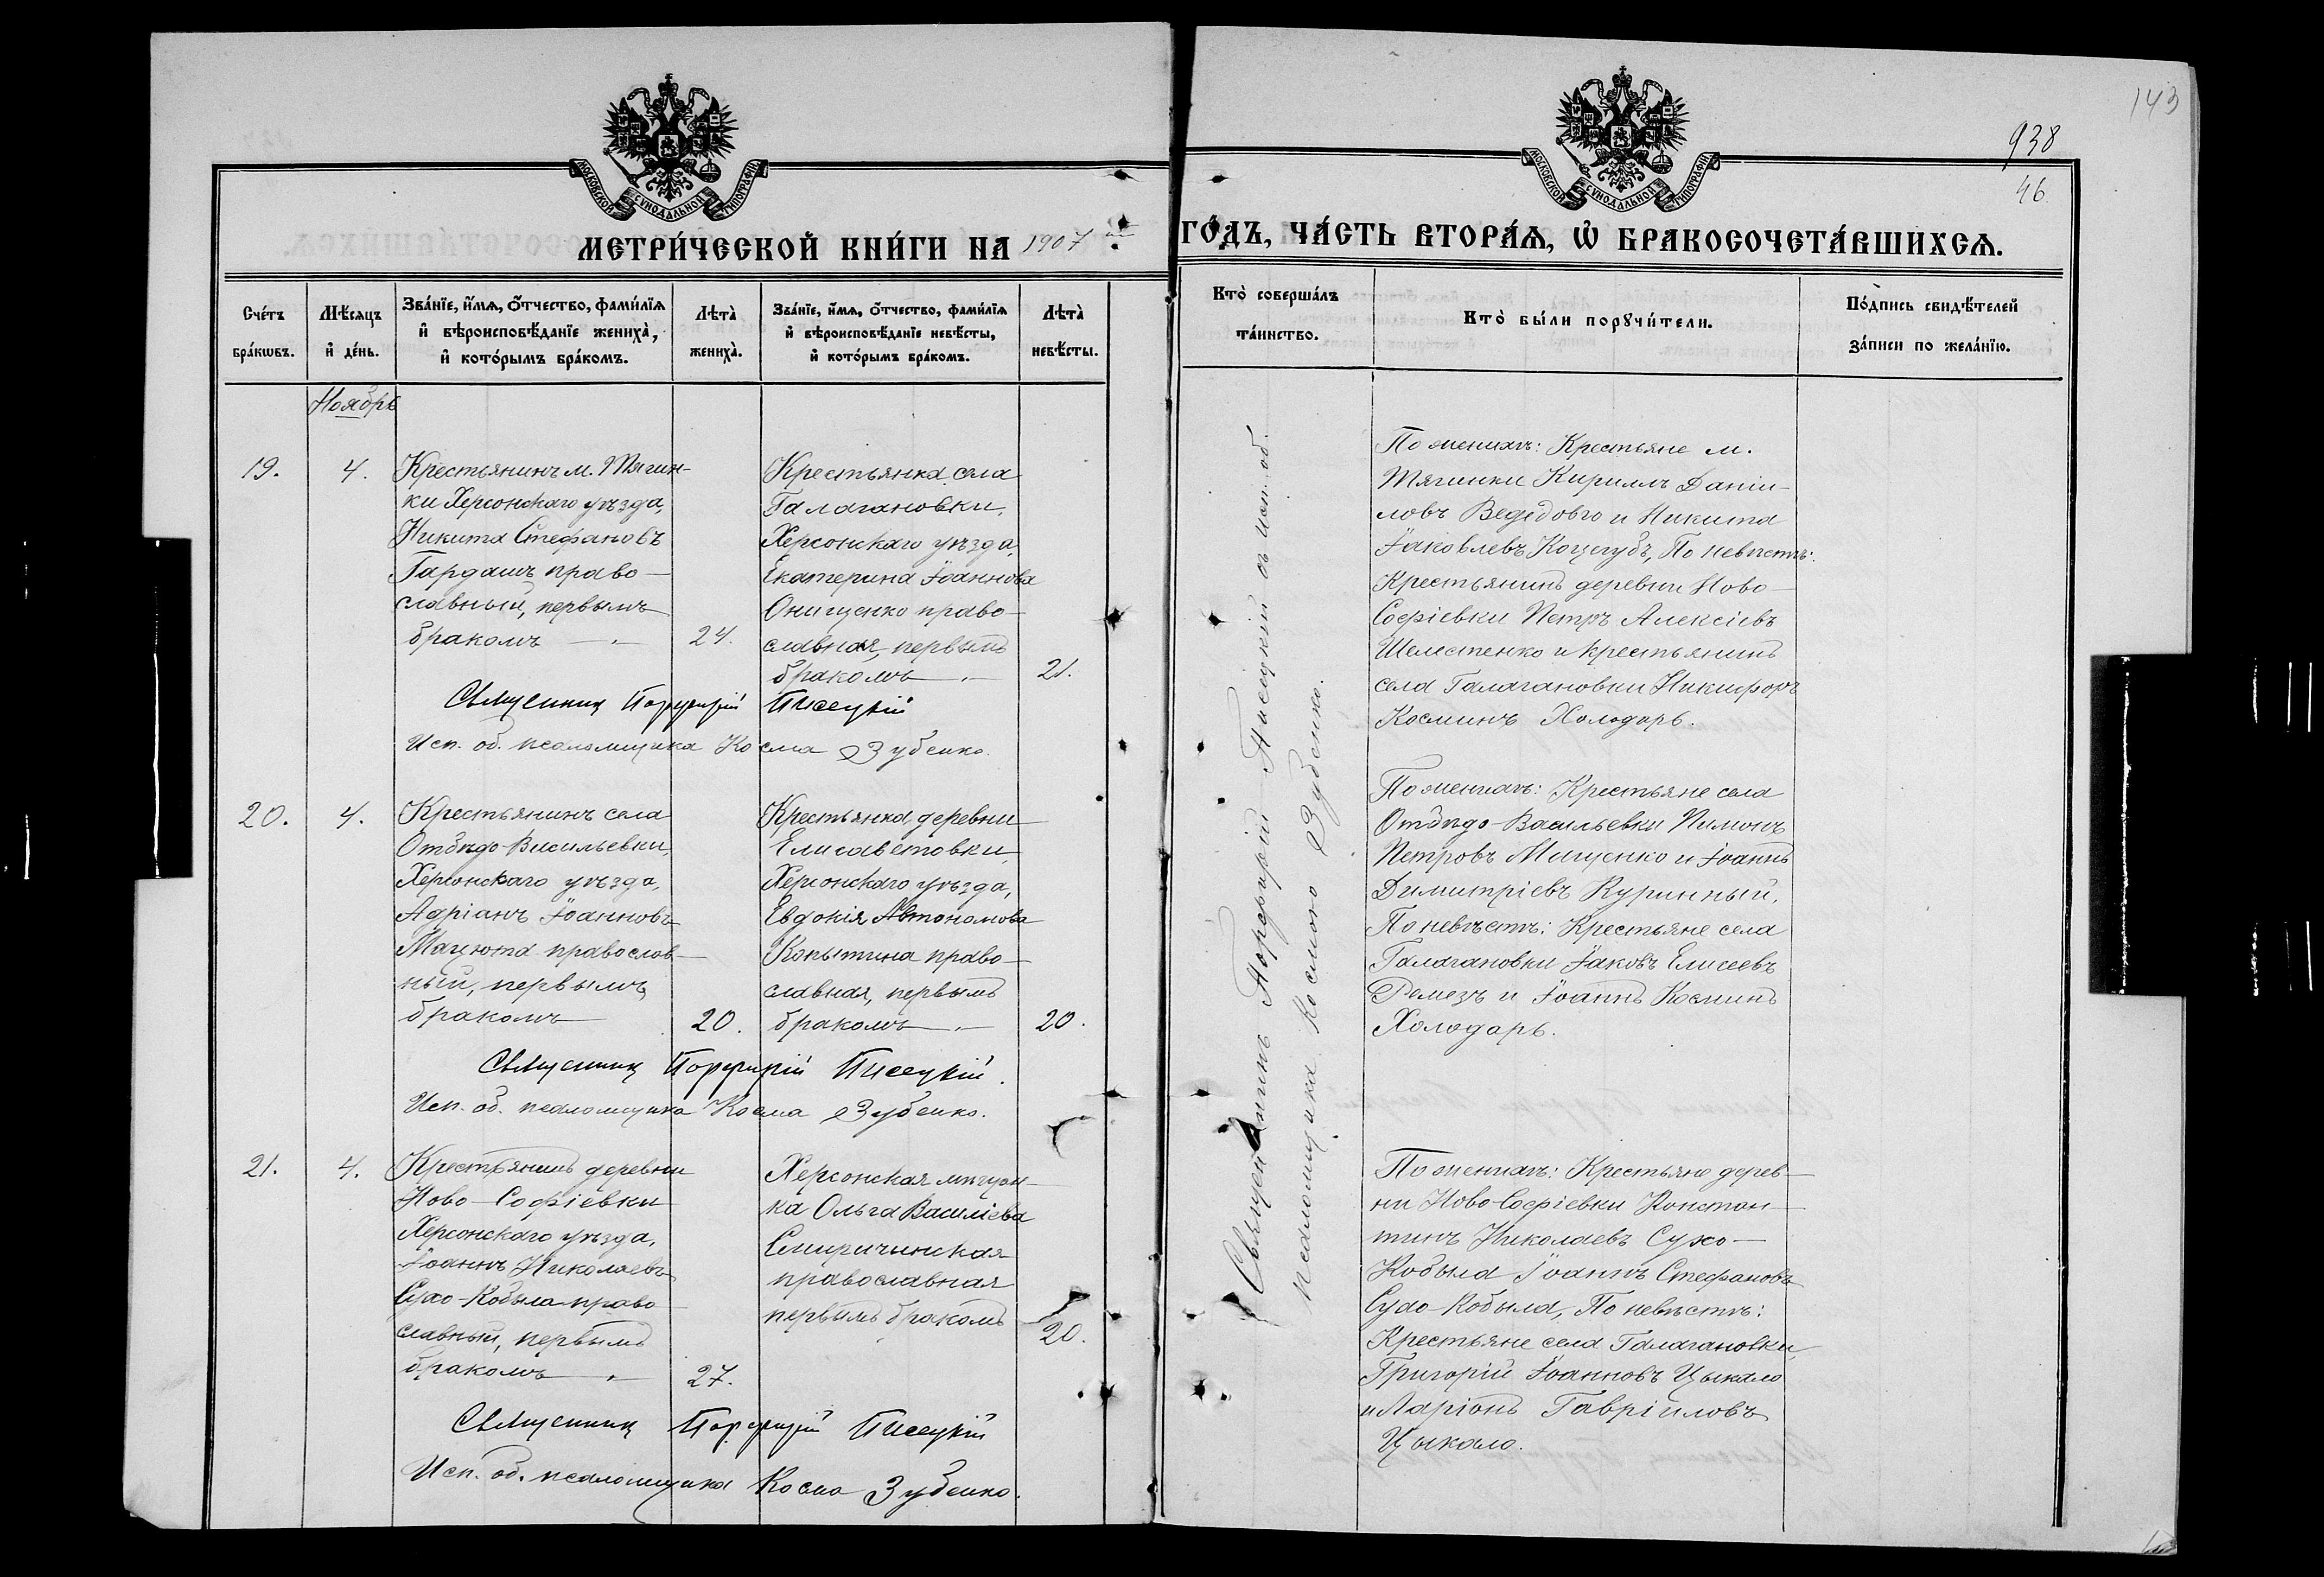 143
938
46
МОСКОВСКОЙ СѴНОДАЛЬНОЙ ТИПОГРАФІИ
МОСКОВСКОЙ СѴНОДАЛЬНОЙ ТИПОГРАФІИ
МЕТРИ́ЧЕСКОЙ КНИ́ГИ НА 1907
ГО́ДЪ, ЧА́СТЬ ВТОРА́Ѧ, Ѡ҆ БРАКОСОЧЕТА́ВШИХСѦ.
Сче́тъ
бра́кѡвъ.
Мѣ́сѧцъ
и҆ де́нь.
Зва́нїе, и҆́мѧ, о҆́тчество, фами́лїѧ
и҆ вѣроисповѣ́данїе жениха̀,
и҆ кото́рымъ бра́комъ.
Лѣта̀
жениха̀.
Зва́нїе, и҆́мѧ, о҆́тчество, фами́лїѧ
и҆ вѣроисповѣ́данїе невѣ́сты,
и҆ кото́рымъ бра́комъ.
Лѣта̀
невѣ́сты.
Кто̀ соверша́лъ
та́инство.
Кто̀ бы́ли порꙋчи́тели.
По́дпись свидѣ́телей
за́писи по жела́нїю.
Ноябрь
19.
4.
Крестьянинъ м. Тягин-
ки Херсонскаго уѣзда,
Никита Стефановъ
Гардашъ право-
славный, первымъ
бракомъ
24.
Крестьянка села
Галагановки,
Херсонскаго уѣзда,
Екатерина Іоаннова
Онищенко право-
славная, первымъ
бракомъ
21.
Священникъ Порфирій Писецкій
Исп. об. псаломщика Косма Зубенко.
По женихѣ: Крестьяне м.
Тягинки Кириллъ Даніи-
ловъ и Никита
Іаковлевъ Коцегубъ, По невѣстѣ:
Крестьянинъ деревни Ново-
Софіевки Петръ Алексіевъ
Шелестенко и крестьянинъ
села Галагановки Никифоръ
Косминъ Холодарь.
20.
4.
Крестьянинъ села
Отбѣдо-Васильевки,
Херсонскаго уѣзда,
Адріанъ Іоанновъ
Мацюта православ-
ный, первымъ
бракомъ
20.
Крестьянка деревни
Елисаветовки,
Херсонскаго уѣзда,
Евдокія Автономова
Копытина право-
славная, первымъ
бракомъ
20.
Священникъ Порфирій Писецкій.
Исп. об. псаломщика Косма Зубенко.
По женихѣ: Крестьяне села
Отбѣдо-Васильевки Пимонъ
Петровъ Мащенко и Іоаннъ
Димитріевъ Куринный,
По невѣстѣ: Крестьяне села
Галагановки Іаковъ Елисеевъ
Ремезъ и Іоаннъ Косминъ
Холодарь.
21.
4.
Крестьянинъ деревни
Ново-Софіевки
Херсонскаго уѣзда,
Іоаннъ Николаевъ
Сухо-Кобыла право
славный, первымъ
бракомъ
27.
Херсонская мѣщан-
ка Ольга Василіева
Смиричинская
православная
первымъ бракомъ
20.
Священникъ Порфирій Писецкій
Исп. об. псаломщика Косма Зубенко.
По женихѣ: Крестьяне дерев-
ни Ново-Софіевки Констан-
тинъ Николаевъ Сухо-
Кобыла Іоаннъ Стефановъ
Сухо-Кобыла, По невѣстѣ:
Крестьяне села Галагановки,
Григорій Іоанновъ Цыкало
и Ларіонъ Гавріиловъ
Цыкало.
Священникъ Порфирій Писецкій съ исп. об.
псаломщика Космою Зубенко.